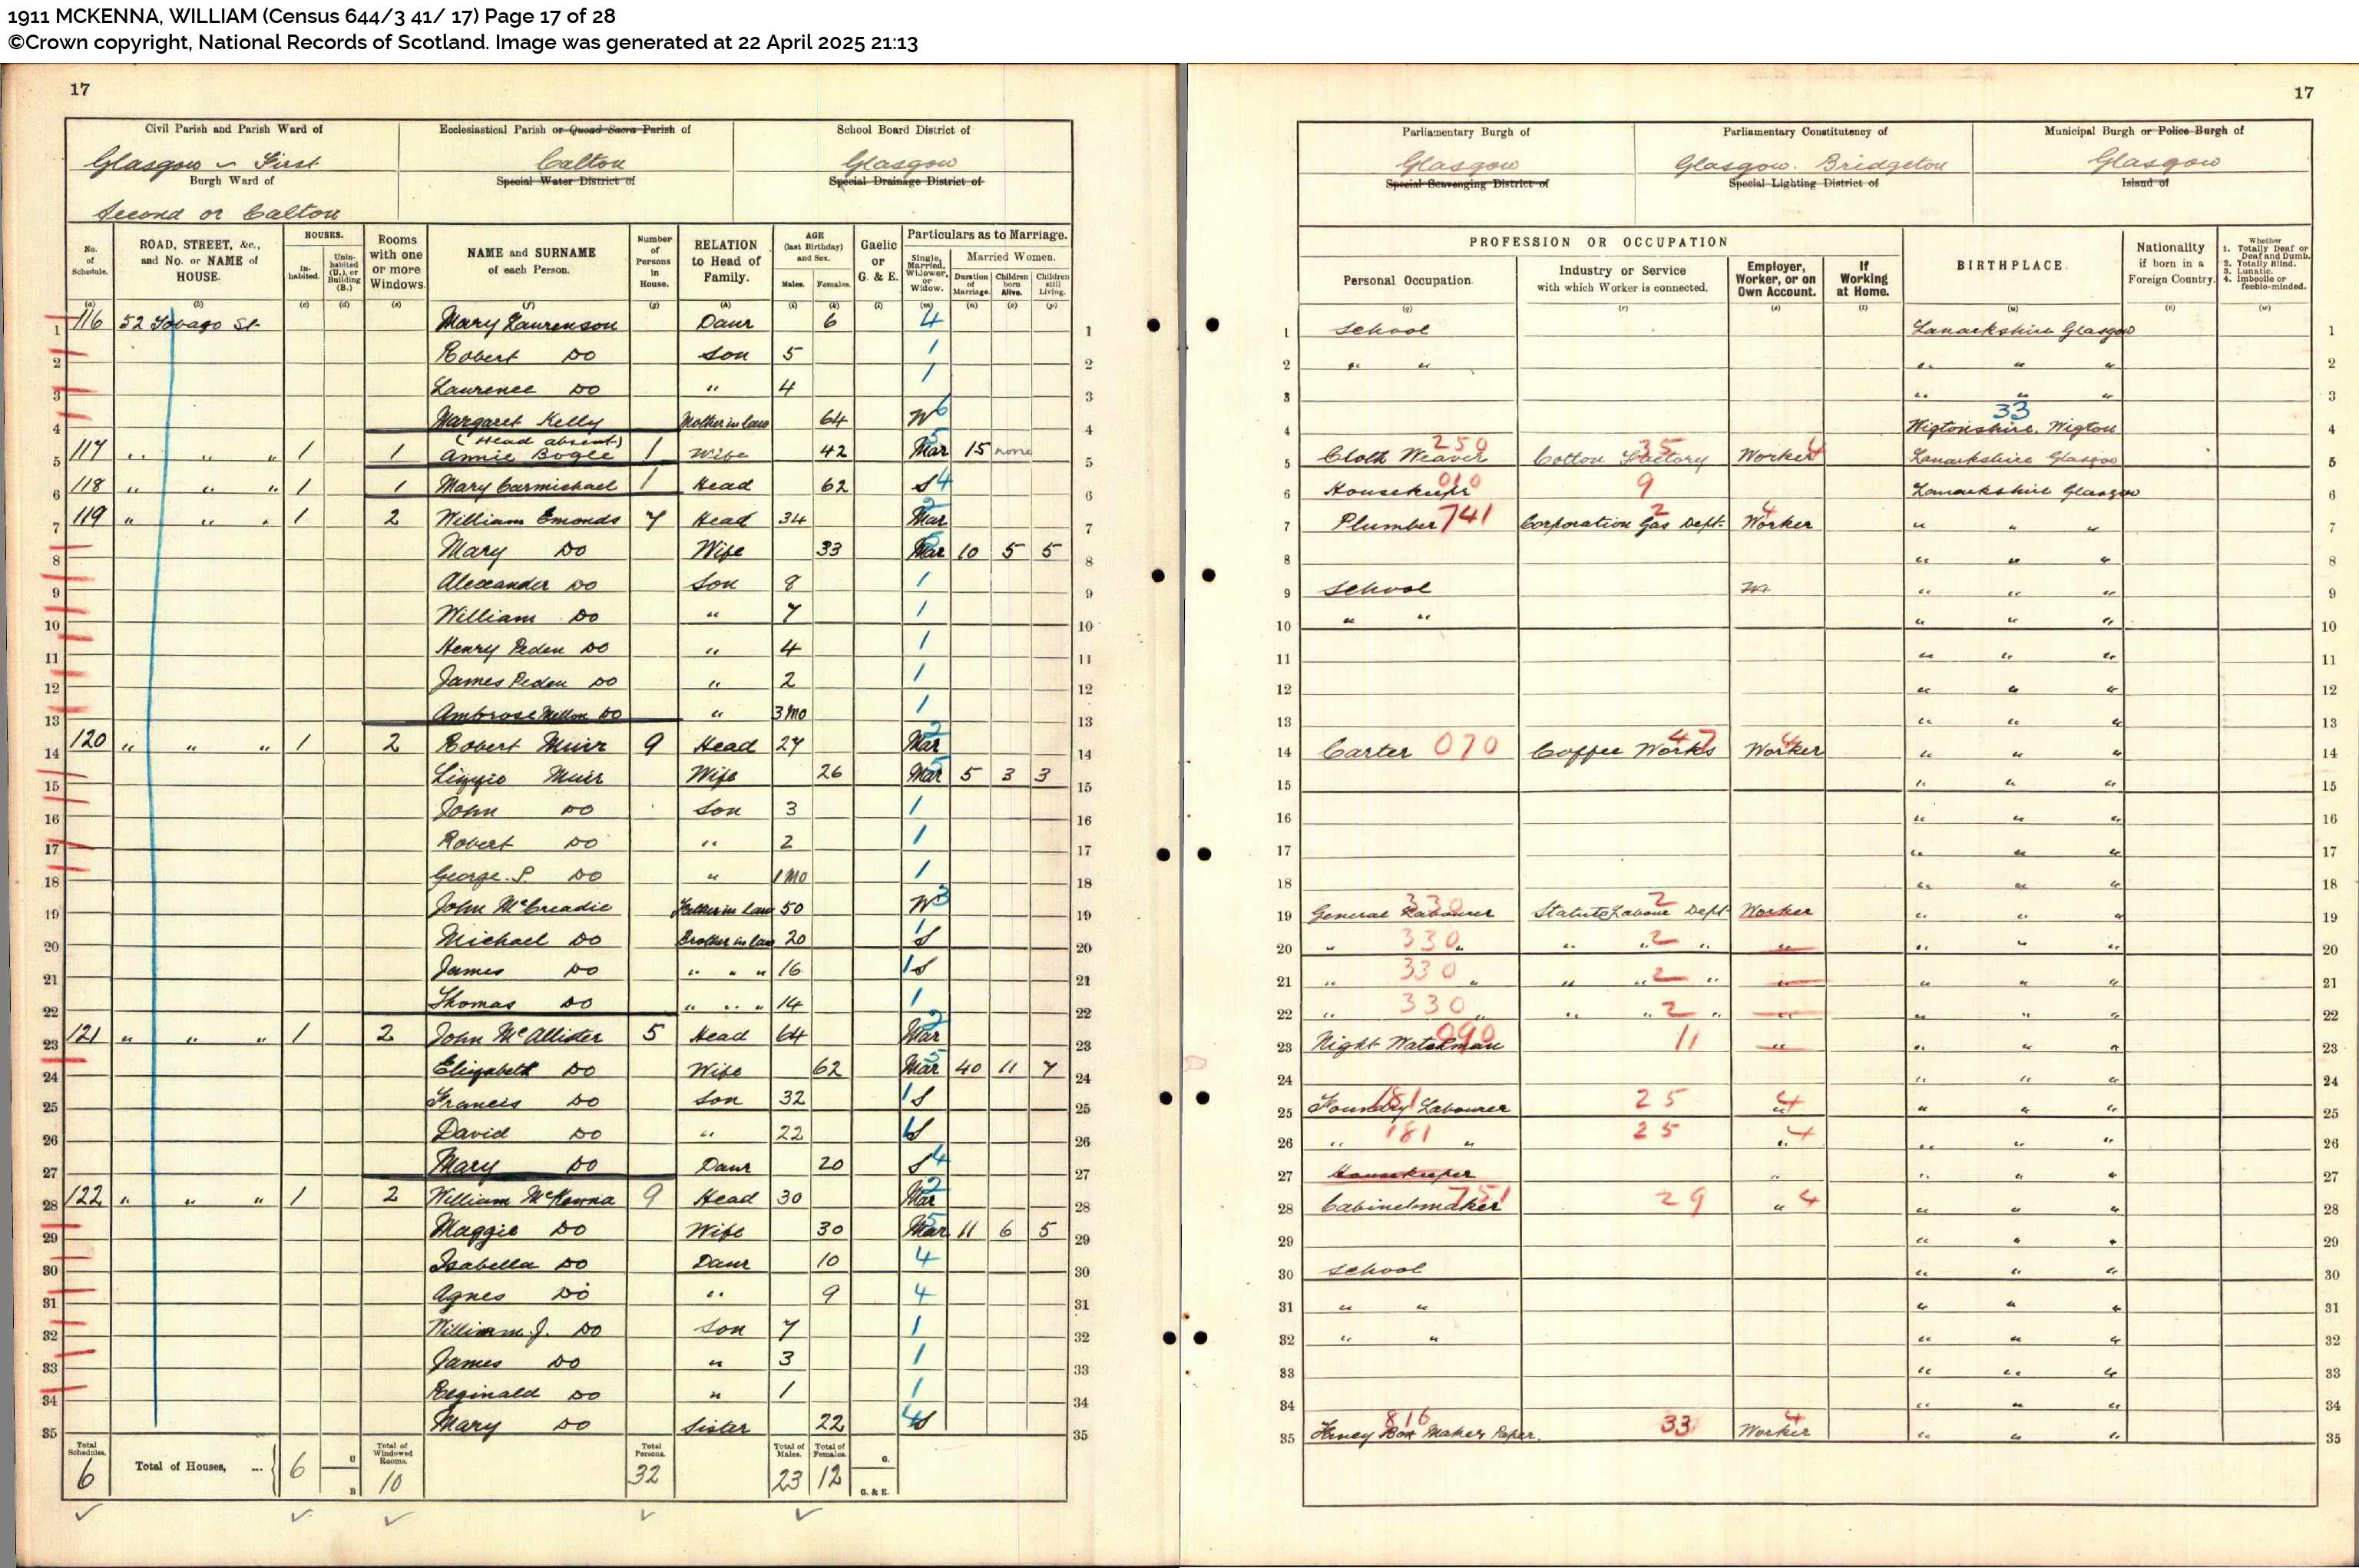 1911 MCKENNA, WILLIAM (Census 644/3 41/ 17) Page 17 of 28
©Crown copyright, National Records of Scotland. Image was generated at 22 April 2025 21:13
17
Civil Parish and Parish Ward of Ecclesiastical Parish or Quoad Sacra Parish of School Board District of
Glasgow – First Calton Glasgow
Burgh Ward of Special Water District of Special Drainage District of
Second or Calton
No. of Schedule. ROAD, STREET, &c., and No. or NAME of HOUSE. HOUSES. Inhabited. Uninhabited (U.), or Building (B.) Rooms with one or more Windows. NAME and SURNAME of each Person. Number of Persons in House. RELATION to Head of Family. AGE (last Birthday) and Sex. Males. Females. Gaelic or G. & E. Particulars as to Marriage. Single, Married, Widower, or Widow. Married Women. Duration of Marriage. Children born Alive. Children still Living.
(a) (b) (c) (d) (e) (f) (g) (h) (i) (k) (l) (m) (n) (o) (p)
1 116 52 Tobago St. Mary Laurenson Daur 6 4 1
2 Robert Do Son 5 1 2
3 Laurence Do " 4 1 3
4 Margaret Kelly Mother in law 64 W 6 4
(Head absent)
5 117 " " " 1 1 Annie Bogle 1 Wife 42 Mar 5 15 none 5
6 118 " " " 1 1 Mary Carmichael 1 Head 62 S 4 6
7 119 " " " 1 2 William Emonds 7 Head 34 Mar 2 7
8 Mary Do Wife 33 Mar 5 10 5 5 8
9 Alexander Do Son 8 1 9
10 William Do " 7 1 10
11 Henry Peden Do " 4 1 11
12 James Peden Do " 2 1 12
13 Ambrose Do " 3 Mo 1 13
14 120 " " " 1 2 Robert Muir 9 Head 27 Mar 2 14
15 Lizzie Muir Wife 26 Mar 5 5 3 3 15
16 John Do Son 3 1 16
17 Robert Do " 2 1 17
18 George. P. Do " 1 Mo 1 18
19 John McCreadie Father in law 50 W 3 19
20 Michael Do Brother in law 20 1 S 20
21 James Do " " " 16 1 S 21
22 Thomas Do " " " 14 1 22
23 121 " " " 1 2 John McAllister 5 Head 64 Mar 2 23
24 Elizabeth Do Wife 62 Mar 5 40 11 7 24
25 Francis Do Son 32 1 S 25
26 David Do " 22 1 S 26
27 Mary Do Daur 20 S 4 27
28 122 " " " 1 2 William McKenna 9 Head 30 Mar 2 28
29 Maggie Do Wife 30 Mar 5 11 6 5 29
30 Isabella Do Daur 10 4 30
31 Agnes Do " 9 4 31
32 William. J. Do Son 7 1 32
33 James Do " 3 1 33
34 Reginald Do " 1 1 34
35 Mary Do Sister 22 4 S 35
Total Schedules. 6 Total of Houses, ... 6 U B Total of Windowed Rooms. 10 Total Persons. 32 Total of Males. 23 Total of Females. 12 G. G. & E.
17
Parliamentary Burgh of Parliamentary Constitutency of Municipal Burgh or Police Burgh of
Glasgow Glasgow. Bridgeton Glasgow
Special Scavenging District of Special Lighting District of Island of
PROFESSION OR OCCUPATION
Personal Occupation. Industry or Service with which Worker is connected. Employer, Worker, or on Own Account. If Working at Home. BIRTHPLACE. Nationality if born in a Foreign Country. Whether 1. Totally Deaf or Deaf and Dumb. 2. Totally Blind. 3. Lunatic. 4. Imbecile or feeble-minded.
(q) (r) (s) (t) (u) (v) (w)
1 School Lanarkshire Glasgow 1
2 " " " " " 2
3 " " " 3
4 33 Wigtonshire. Wigton 4
5 Cloth Weaver 250 Cotton Factory 35 Worker 4 Lanarkshire Glasgow 5
6 Housekeeper 010 9 Lanarkshire Glasgow 6
7 Plumber 741 Corporation Gas Dept. 2 Worker 4 " " " 7
8 " " " 8
9 School " " " 9
10 " " " " " 10
11 " " " 11
12 " " " 12
13 " " " 13
14 Carter 070 Coffee Works 47 Worker 4 " " " 14
15 " " " 15
16 " " " 16
17 " " " 17
18 " " " 18
19 General Labourer 330 Statute Labour Dept 2 Worker " " " 19
20 " 330 " " " 2 " " " " " 20
21 " 330 " " " 2 " " " " " 21
22 " 330 " " " 2 " " " " " 22
23 Night Watchman 090 11 " " " " 23
24 " " " 24
25 Foundry Labourer 181 25 " 4 " " " 25
26 " 181 " 25 " 4 " " " 26
27 Housekeeper " " " " 27
28 Cabinetmaker 751 29 " 4 " " " 28
29 " " " 29
30 School " " " 30
31 " " " " " 31
32 " " " " " 32
33 " " " 33
34 " " " 34
35 Fancy Box Maker Paper. 816 33 Worker 4 " " " 35